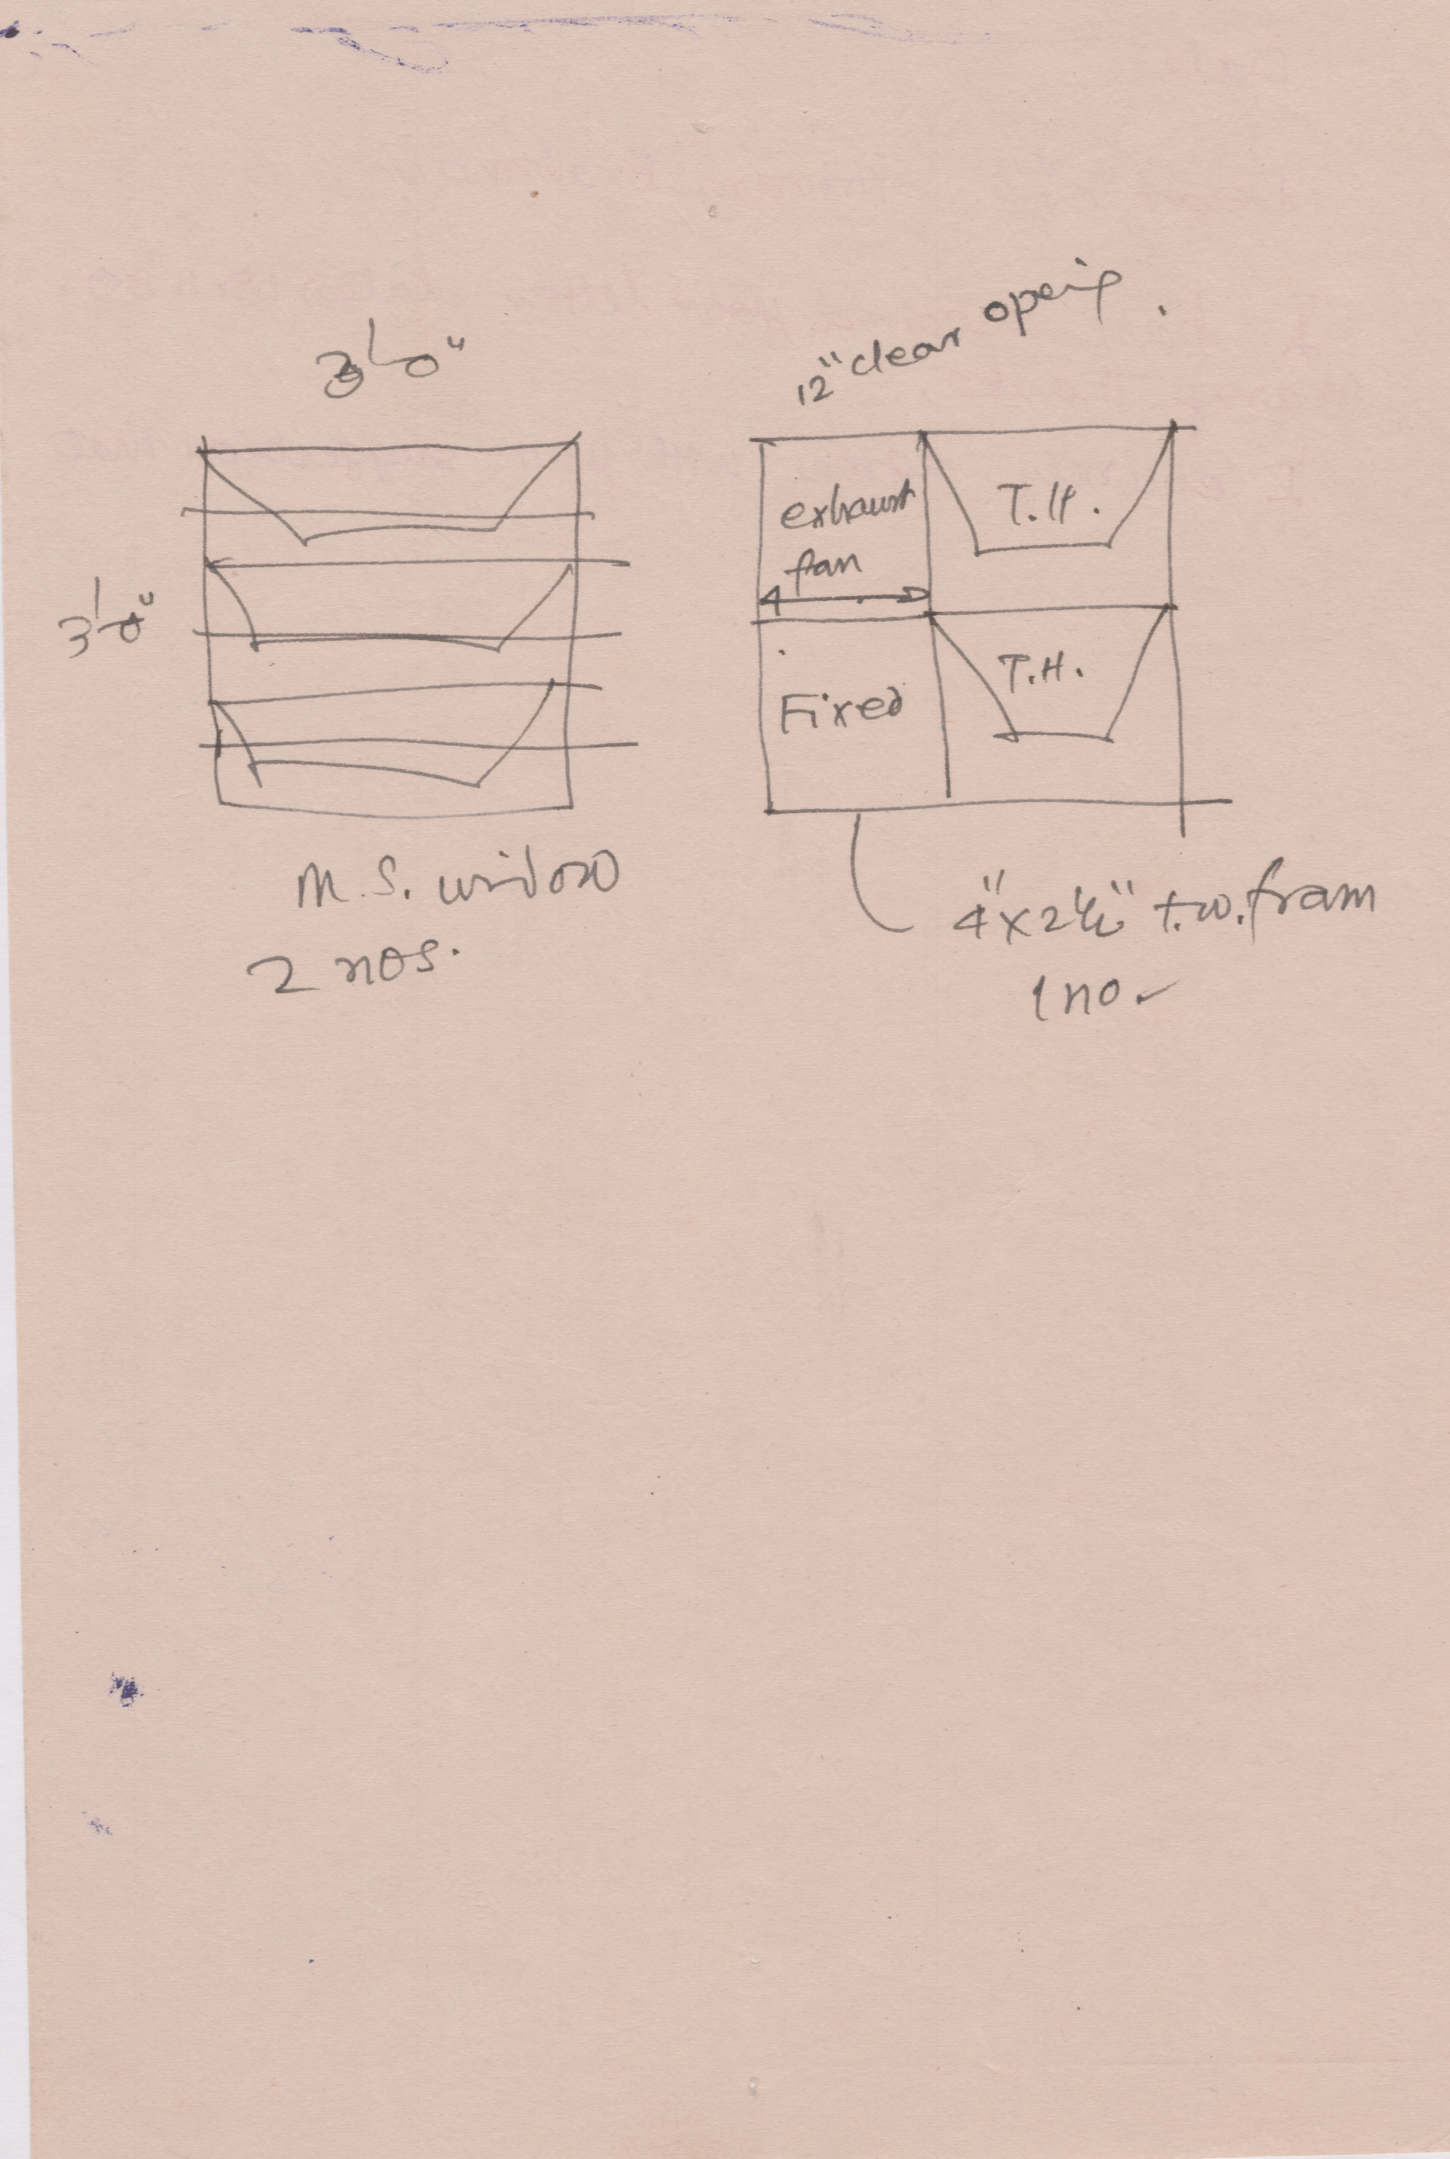 3'-0"
3'-0"
M.S. window
2 nos.
12" clear opening.
exhaust
fan
T.H.
Fixed
T.H.
4" x 2½" t.w. fram
1 no.